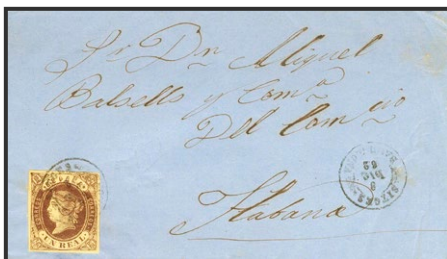 Sr. Dn. Miguel
Balsells y Compa.
Del Comercio
Habana
UN REAL
SITGES
8
DIC
62